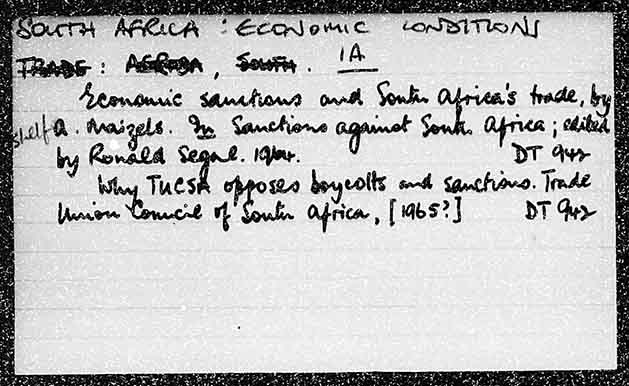 SOUTH AFRICA : ECONOMIC CONDITIONS
TRADE : AFRICA, SOUTH. 1A
Economic sanctions and South Africa's trade, by
shelf A. Maizels. In Sanctions against South Africa; edited
by Ronald Segal. 1964. DT 942
Why TUCSA opposes boycotts and sanctions. Trade
Union Council of South Africa, [1965?] DT 942